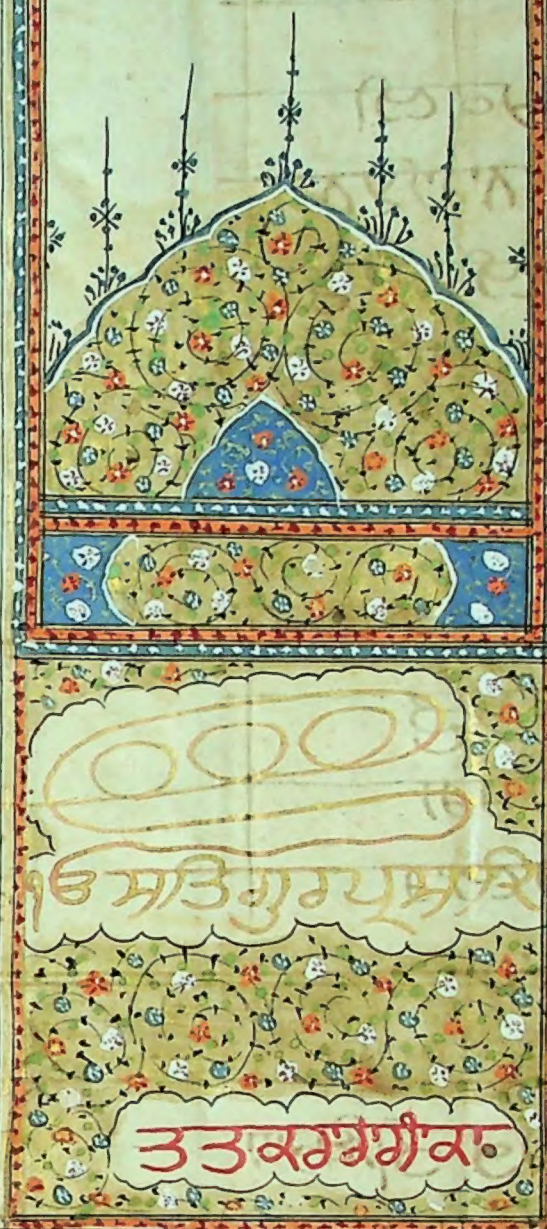 ੴ ਸਤਿਗੁਰਪ੍ਰਸਾਦਿ
ਤਤਕਰਾਰਾਗਾਂਕਾ